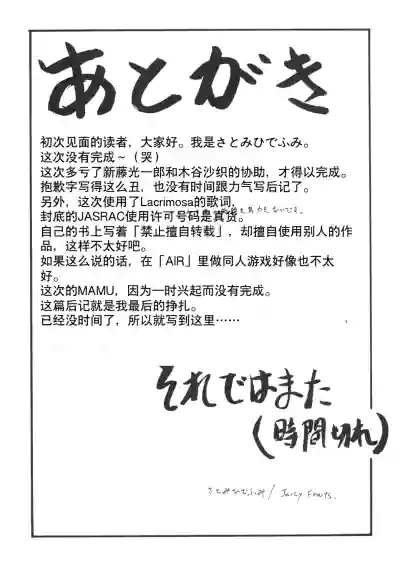 あとがき
初次见面的读者，大家好。我是さとみひでふみ。
这次没有完成～（哭）
这次多亏了新藤光一郎和木谷沙织的协助，才得以完成。
抱歉字写得这么丑，也没有时间跟力气写后记了。
另外，这次使用了Lacrimosa的歌词，
封底的JASRAC使用许可号码是真货。
自己的书上写着「禁止擅自转载」，却擅自使用别人的作
品，这样不太好吧。
如果这么说的话，在「AIR」里做同人游戏好像也不太
好。
这次的MAMU，因为一时兴起而没有完成。
这篇后记就是我最后的挣扎。
已经没时间了，所以就写到这里……
それではまた
（時間切れ）
さとみひでふみ / Juicy Fruits.